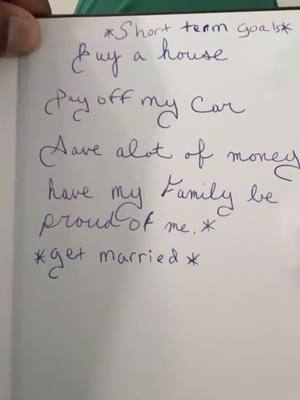 *Short term goals*
Buy a house
Pay off my Car
Save alot of money
have my Family be
proud of me.*
*get married*